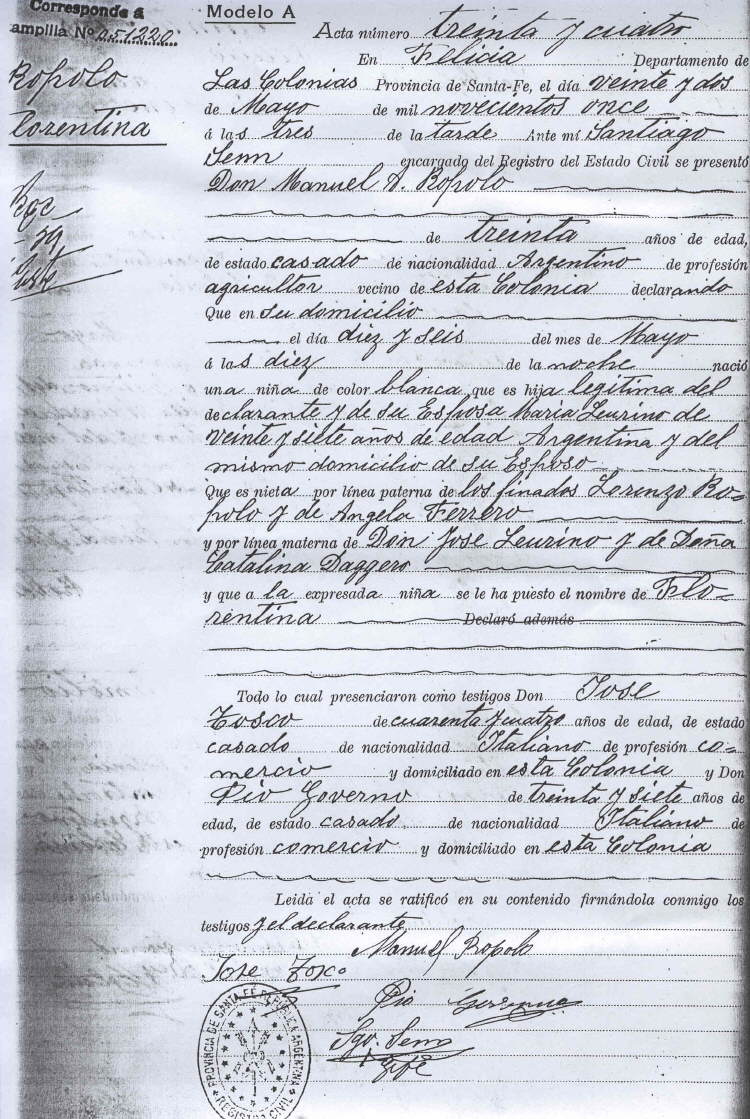 Corresponde á
ampilla Nº
Modelo A
Acta número treinta y cuatro
En Felicia Departamento de
Ropolo
Las Colonias Provincia de Santa-Fe, el día veinte y dos
de Mayo de mil novecientos once
Florentina
á las tres de la tarde Ante mí Santiago
Senn encargado del Registro del Estado Civil se presentó
Don Manuel A. Ropolo
de treinta años de edad,
de estado casado de nacionalidad Argentino de profesión
agricultor vecino de esta Colonia declarando
Que en su domicilio
el día diez y seis del mes de Mayo
á las diez de la noche nació
una niña de color blanca que es hija legitima del
declarante y de su Esposa Maria Leurino de
veinte y siete años de edad Argentina y del
mismo domicilio de su Esposo
Que es nieta por línea paterna de los finados Lorenzo Ro=
polo y de Angela Ferrero
y por línea materna de Don Jose Leurino y de Doña
Catalina Daggero
y que a la expresada niña se le ha puesto el nombre de Flo=
rentina Declaró además
Todo lo cual presenciaron como testigos Don Jose
Tosco de cuarenta y cuatro años de edad, de estado
casado de nacionalidad Italiano de profesión co=
mercio y domiciliado en esta Colonia y Don
Pio Governo de treinta y siete años de
edad, de estado casado de nacionalidad Italiano de
profesión comercio y domiciliado en esta Colonia
Leida el acta se ratificó en su contenido firmándola conmigo los
testigos y el declarante
Manuel Ropolo
Jose Tosco
Pio Governo
Sgo. Senn
PROVINCIA DE SANTA FÉ REPUBLICA ARGENTINA
REGISTRO CIVIL